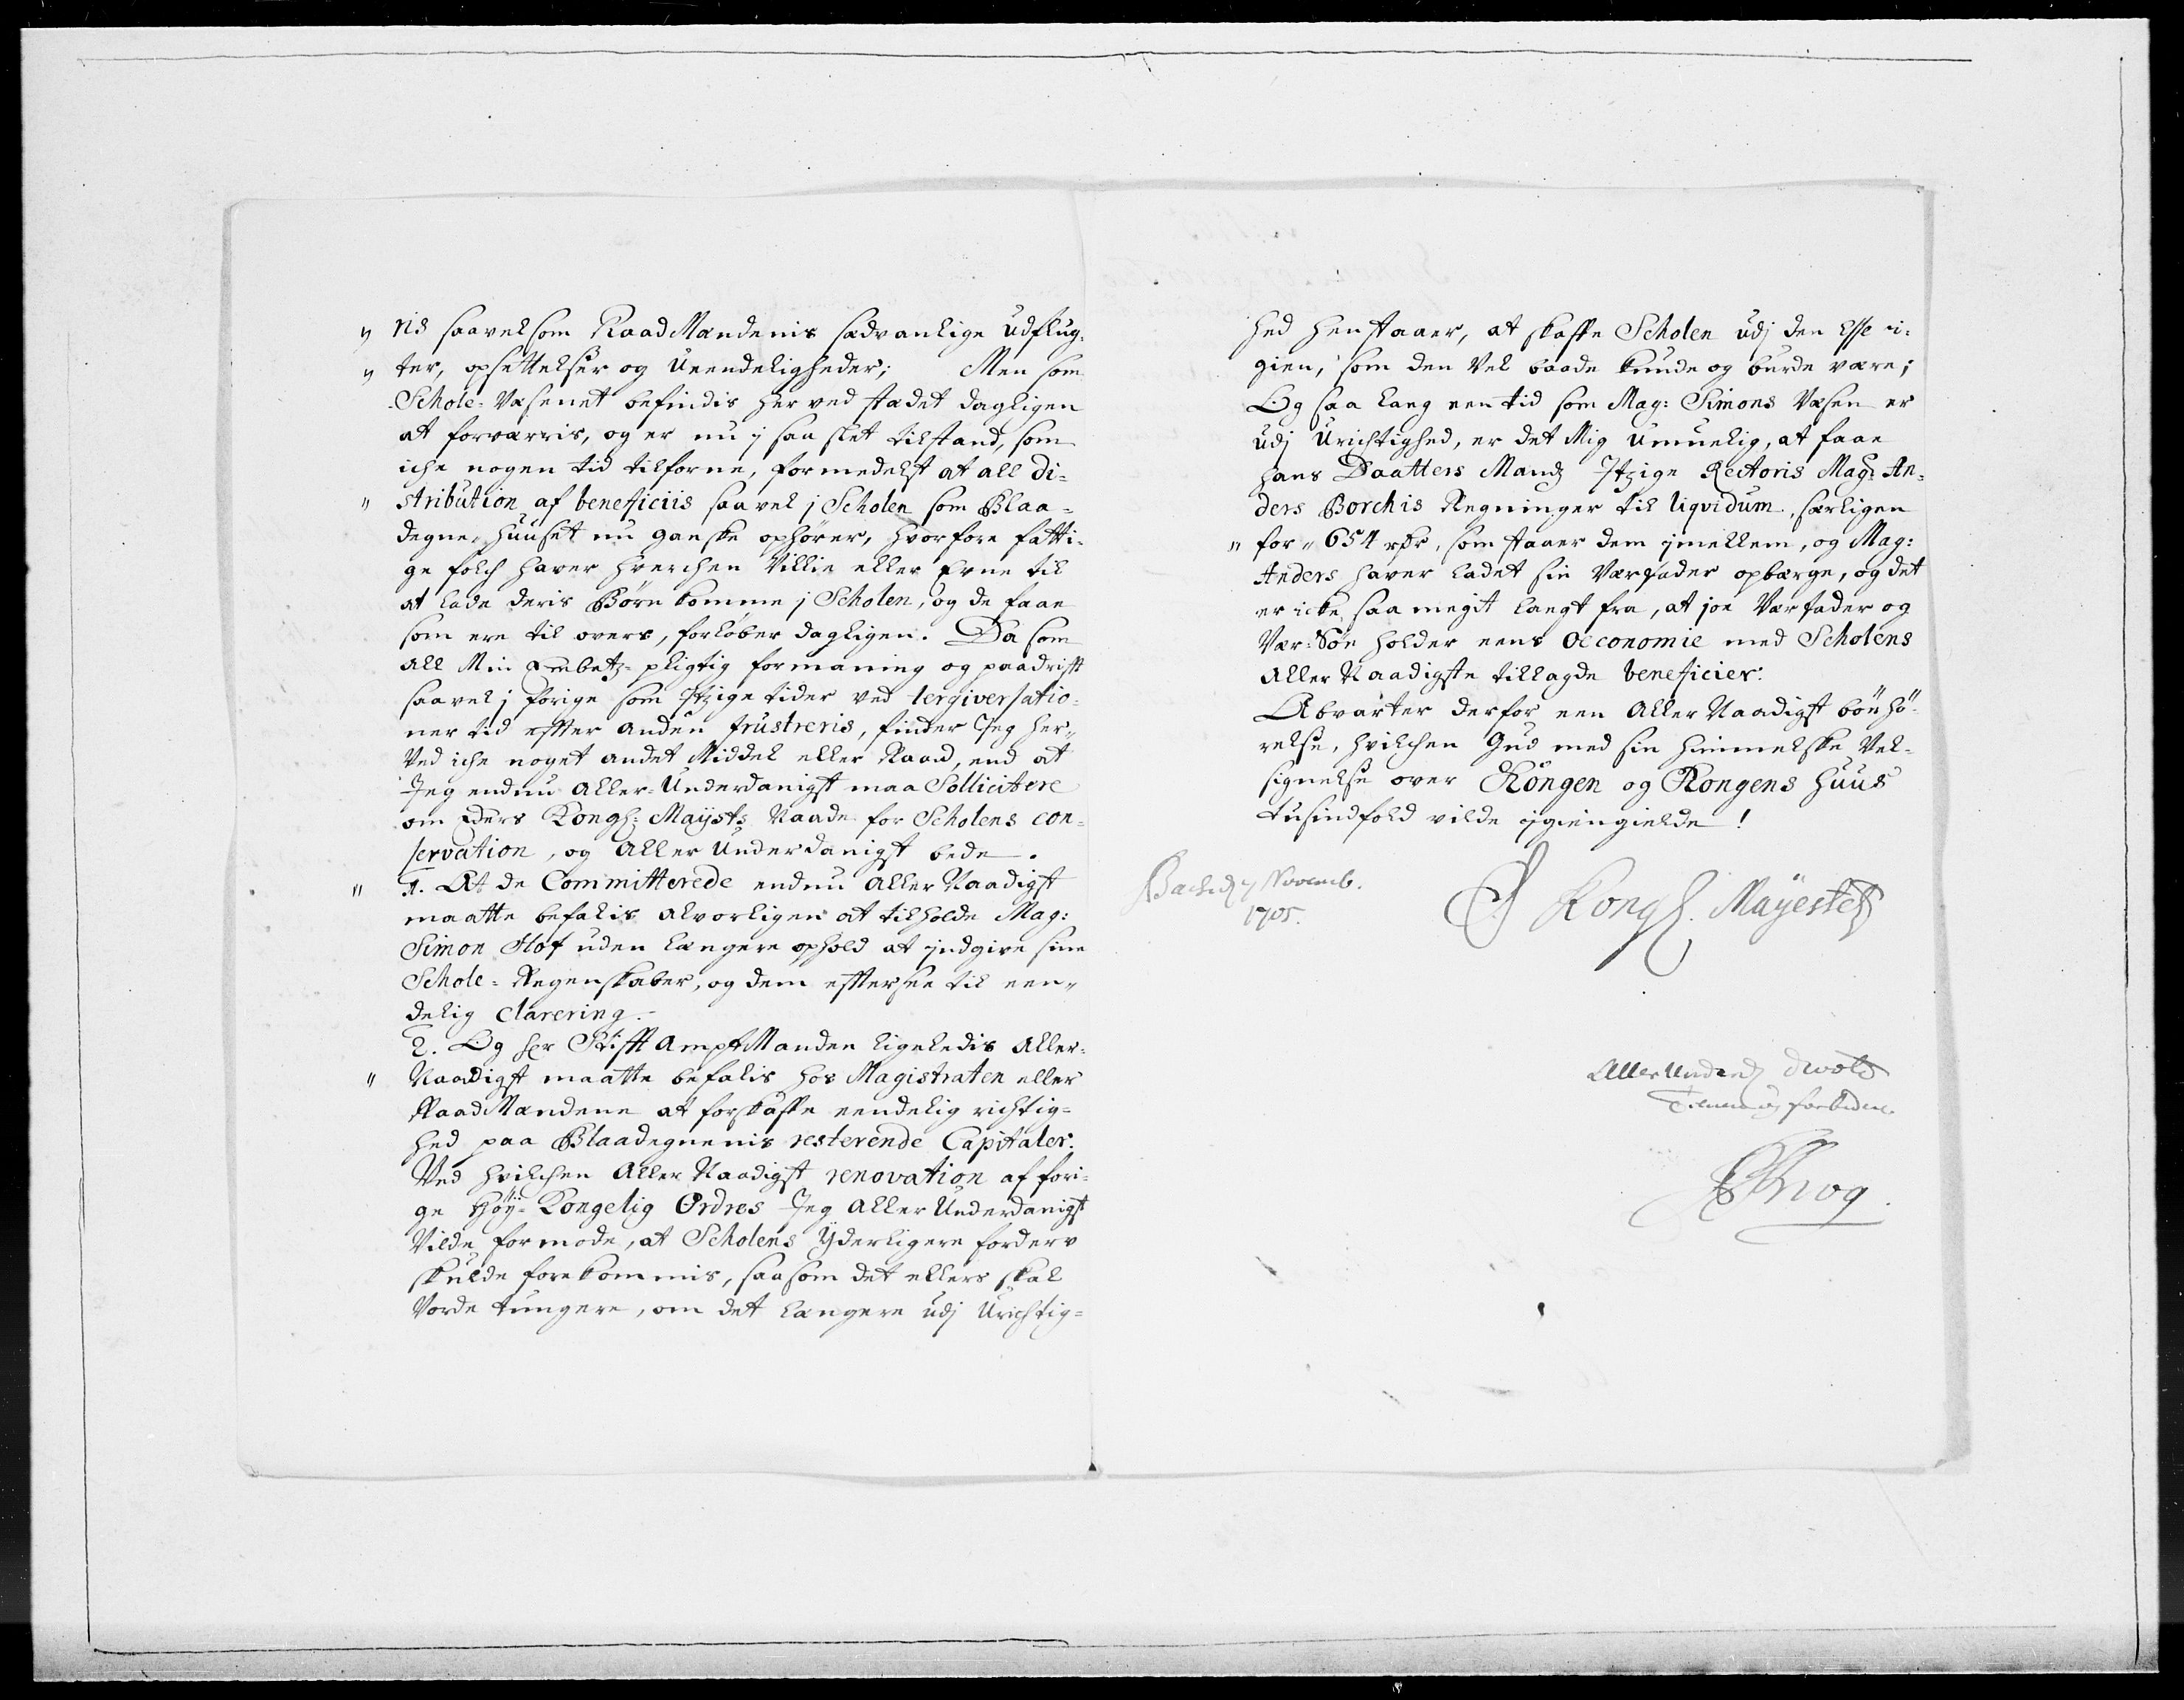 " ris saavelsom Raad Mændenis sædvanlige udflug-
" ter, opsettelser og Uendeligheder; Men som
Schole-Væsenet befindis her ved stædet dagligen
at forværris, og er nu i saa slet tilstand, som
iche nogen tid tilforne, formedelst at all di-
" stribution af beneficiis saavel i Scholen som Blaa-
degne, huuset nu ganske ophører, hvorfore fatti-
ge folch haver hverchen Villie eller Evne til
at lade deris Børn komme i Scholen, og de faae
som ere til overs, forløber dagligen. Da som
all Min Embetz-pligtig formaning og paadrifft
saavel i forige som Itzige tider ved tergiversatio-
ner tid effter anden frustreris, finder Jeg her-
Ved iche noget andet Middel eller Raad, end at
Jeg endnu aller-Underdanigst maa Sollicitere
om Eders Kongl: Mayts Naade for Scholens con-
servation, og Aller Underdanigst bede.
" 1. At de Committerede endnu Aller Naadigst
maatte befalis alvorligen at tilholde Mag:
Simon Hof uden længere ophold at indgive sine
Schole-Regenskaber, og dem effersee til een-
delig clarering.
2. Og her Stifft AmptManden ligeledis Aller-
" Naadigst maatte befalis hos Magistraten eller
Raad Mændene at forskaffe eendelig richtig-
hed paa Blaadegnenis resterende Capitaler.
Ved hvilchen Aller Naadigst renovation af fori-
ge Høy-Kongelig Ordres Jeg Aller Underdanigst
Vilde formode, at Scholens Yderligere forderv
skulde forekommis, saasom det ellers skal
Vorde tungere, om det længere udj Urichtig-
hed henstaaer, at skaffe Scholen udj den Esse i-
gien, som den Vel baade kunde og burde være;
Og saa lang een tid som Mag: Simons Væsen er
udj Urichtighed, er det Mig umuelig, at faae
hans Daatters Mandz Itzige Rectoris Mag: An-
ders Borchis Regninger til liqvidum, særligen
" for " 654 rdr, som staaer dem imellem, og Mag:
Anders haver ladet sin Værfader opbærge, og det
er icke saa megit langt fra, at joe Værfader og
Vær-Søn holder eens oeconomie med Scholens
Aller Naadigste tillagde beneficier.
Abvarter derfor een Aller Naadigst bönhö-
relse, hvilchen Gud med sin himmelske Vel-
signelse over Kongen og Kongens Huus
tusindfold vilde igiengielde!
7 Novemb.
1705.
Kongl. Mayestets
Aller Underd
forbedere
Krog.